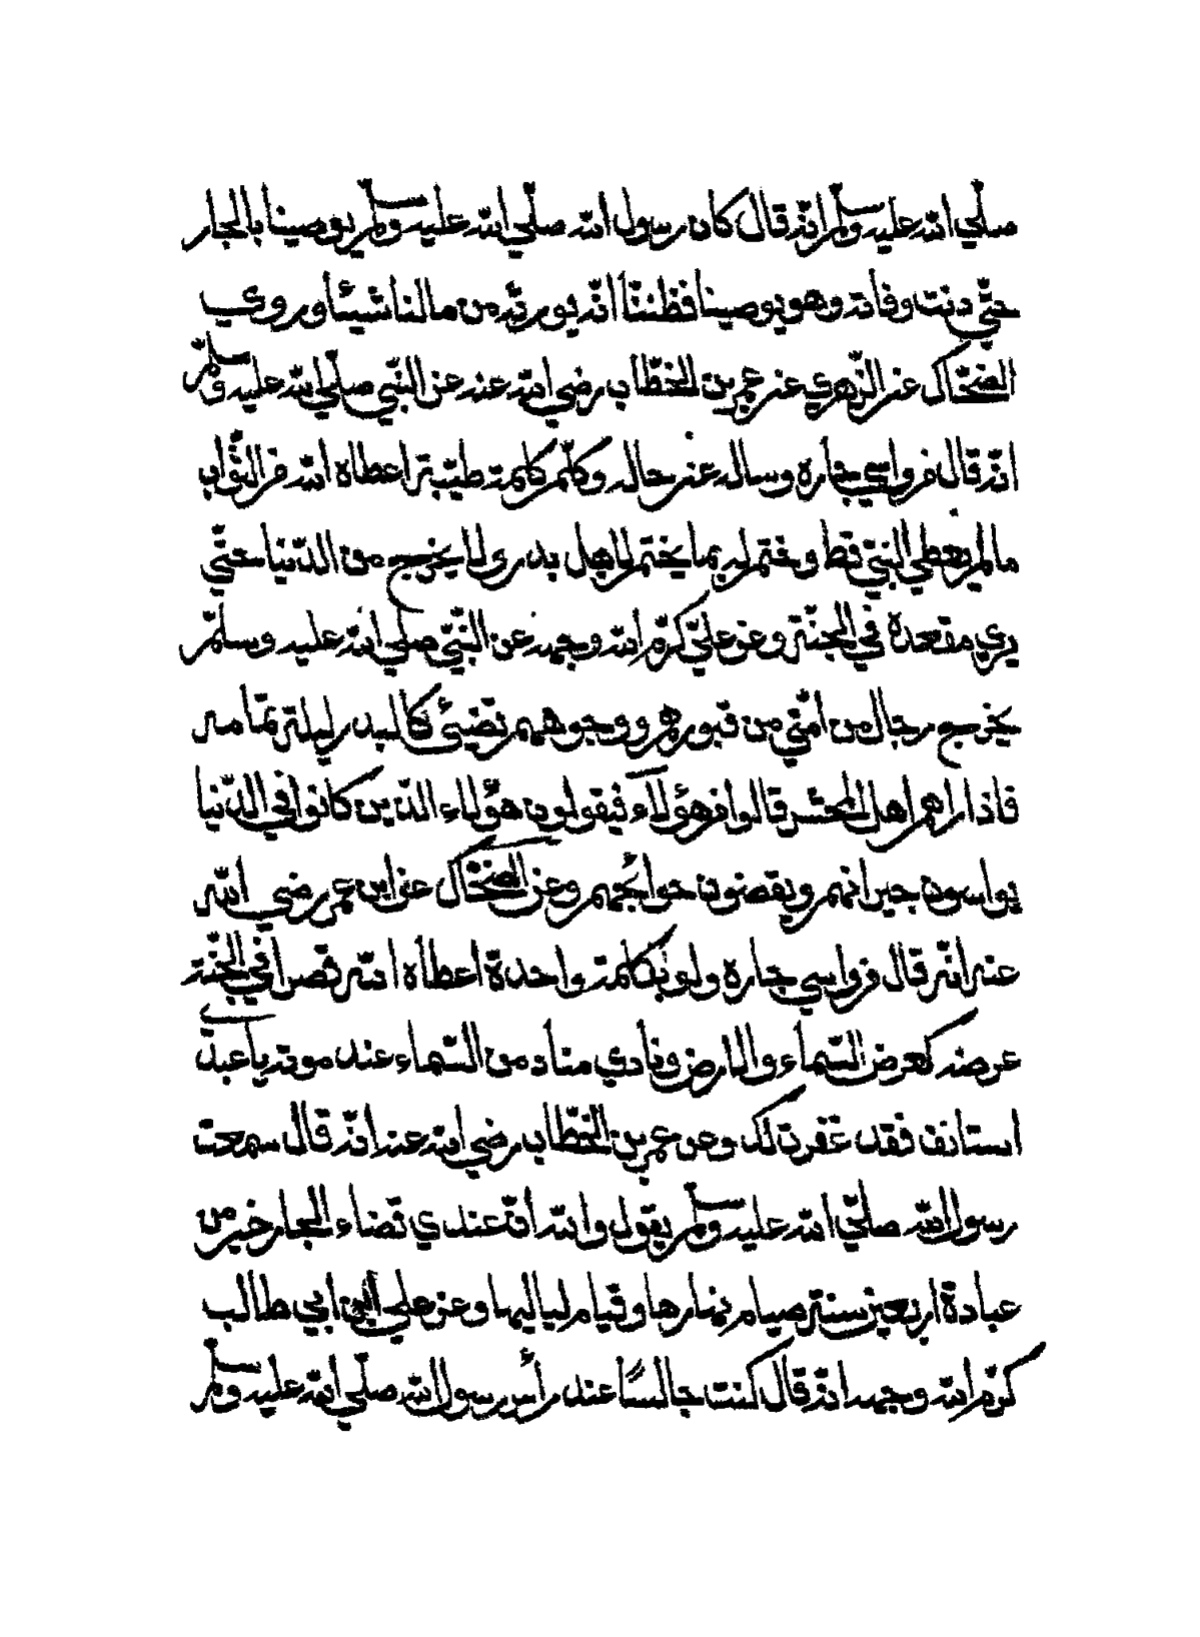 صلّي الله عليه وسلم انّه قال كان رسول الله صلّي الله عليه وسلم يوصينا بالجار
حتّي دنت وفاته وهو يوصينا فظننّا انّه يورثه من مالنا شيئا وروي
الضحّاك عن الزّهري عن عمر بن الخطّاب رضي الله عنه عن النّبي صلّي الله عليه وسلّم
انّه قال من واسي جاره وساله عن حاله وكلّم كلمة طيّبة اعطاه الله من الثّواب
ما لم يعطي النبيّ قط وختم له بما يختم لاهل بدر ولا يخرج من الدّنيا حتّي
يري مقعده في الجنّة وعن عليّ كرّم الله وجهه عن النّبيّ صلي الله عليه وسلّم
يخرج رجال من امّتي من قبورهم ووجوههم تضيئ كالبدر ليلة تمامه
فاذا راهم اهل المحشر قالوا من هؤلاء فيقولون هؤلاء الّذين كانوا في الدّنيا
يواسون جيرانهم ويقضون حوائجهم وعن الضحّاك عن ابن عمر رضي الله
عنه انّه قال من واسي جاره ولو بكلمة واحدة اعطاه الله قصرا في الجنّة
عرضه كعرض السّماء والارض ونادي مناد من السّماء عند موته يا عبدي
استانف فقد غفرت لك وعن عمر بن الخطّاب رضي الله عنه انّه قال سمعت
رسول الله صلّي الله عليه وسلم يقول والله انّ عندي قضاء الجار خير من
عبادة اربعين سنة صيام نهارها وقيام لياليها وعن علي ابن ابي طالب
كرّم الله وجهه انّه قال كنت جالسًا عند رأس رسول الله صلّي الله عليه وسلم